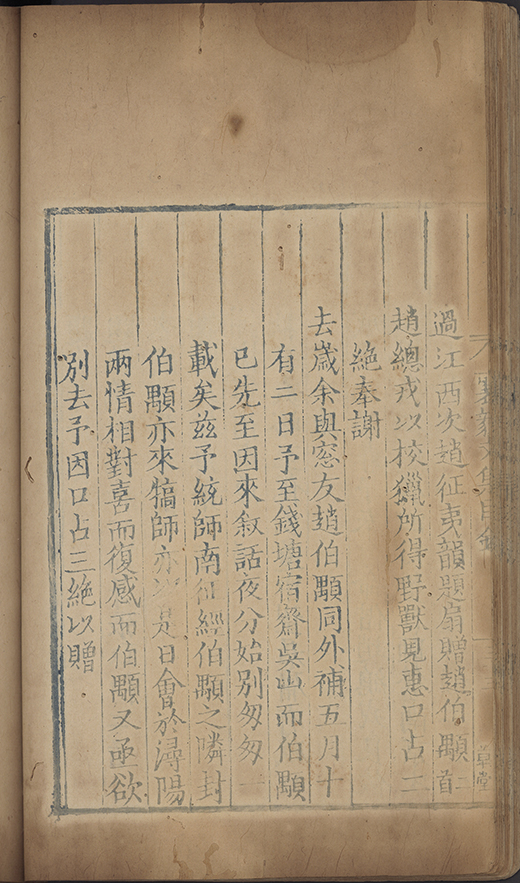 過江西次趙征夷韻題扇贈趙伯顒二首
趙總戎以校獵所得野獸見惠口占二
絶奉謝
去歲余與窓友趙伯顒同外補五月十
有二日予至錢塘宿齋吳山而伯顒
已先至因來叙話夜分始別匆匆一
載矣兹予統師南征經伯顒之隣封
伯顒亦來犒師亦 是日會於潯陽
兩情相對喜而復感而伯顒又亟欲
別去予因口占三絶以贈
草堂